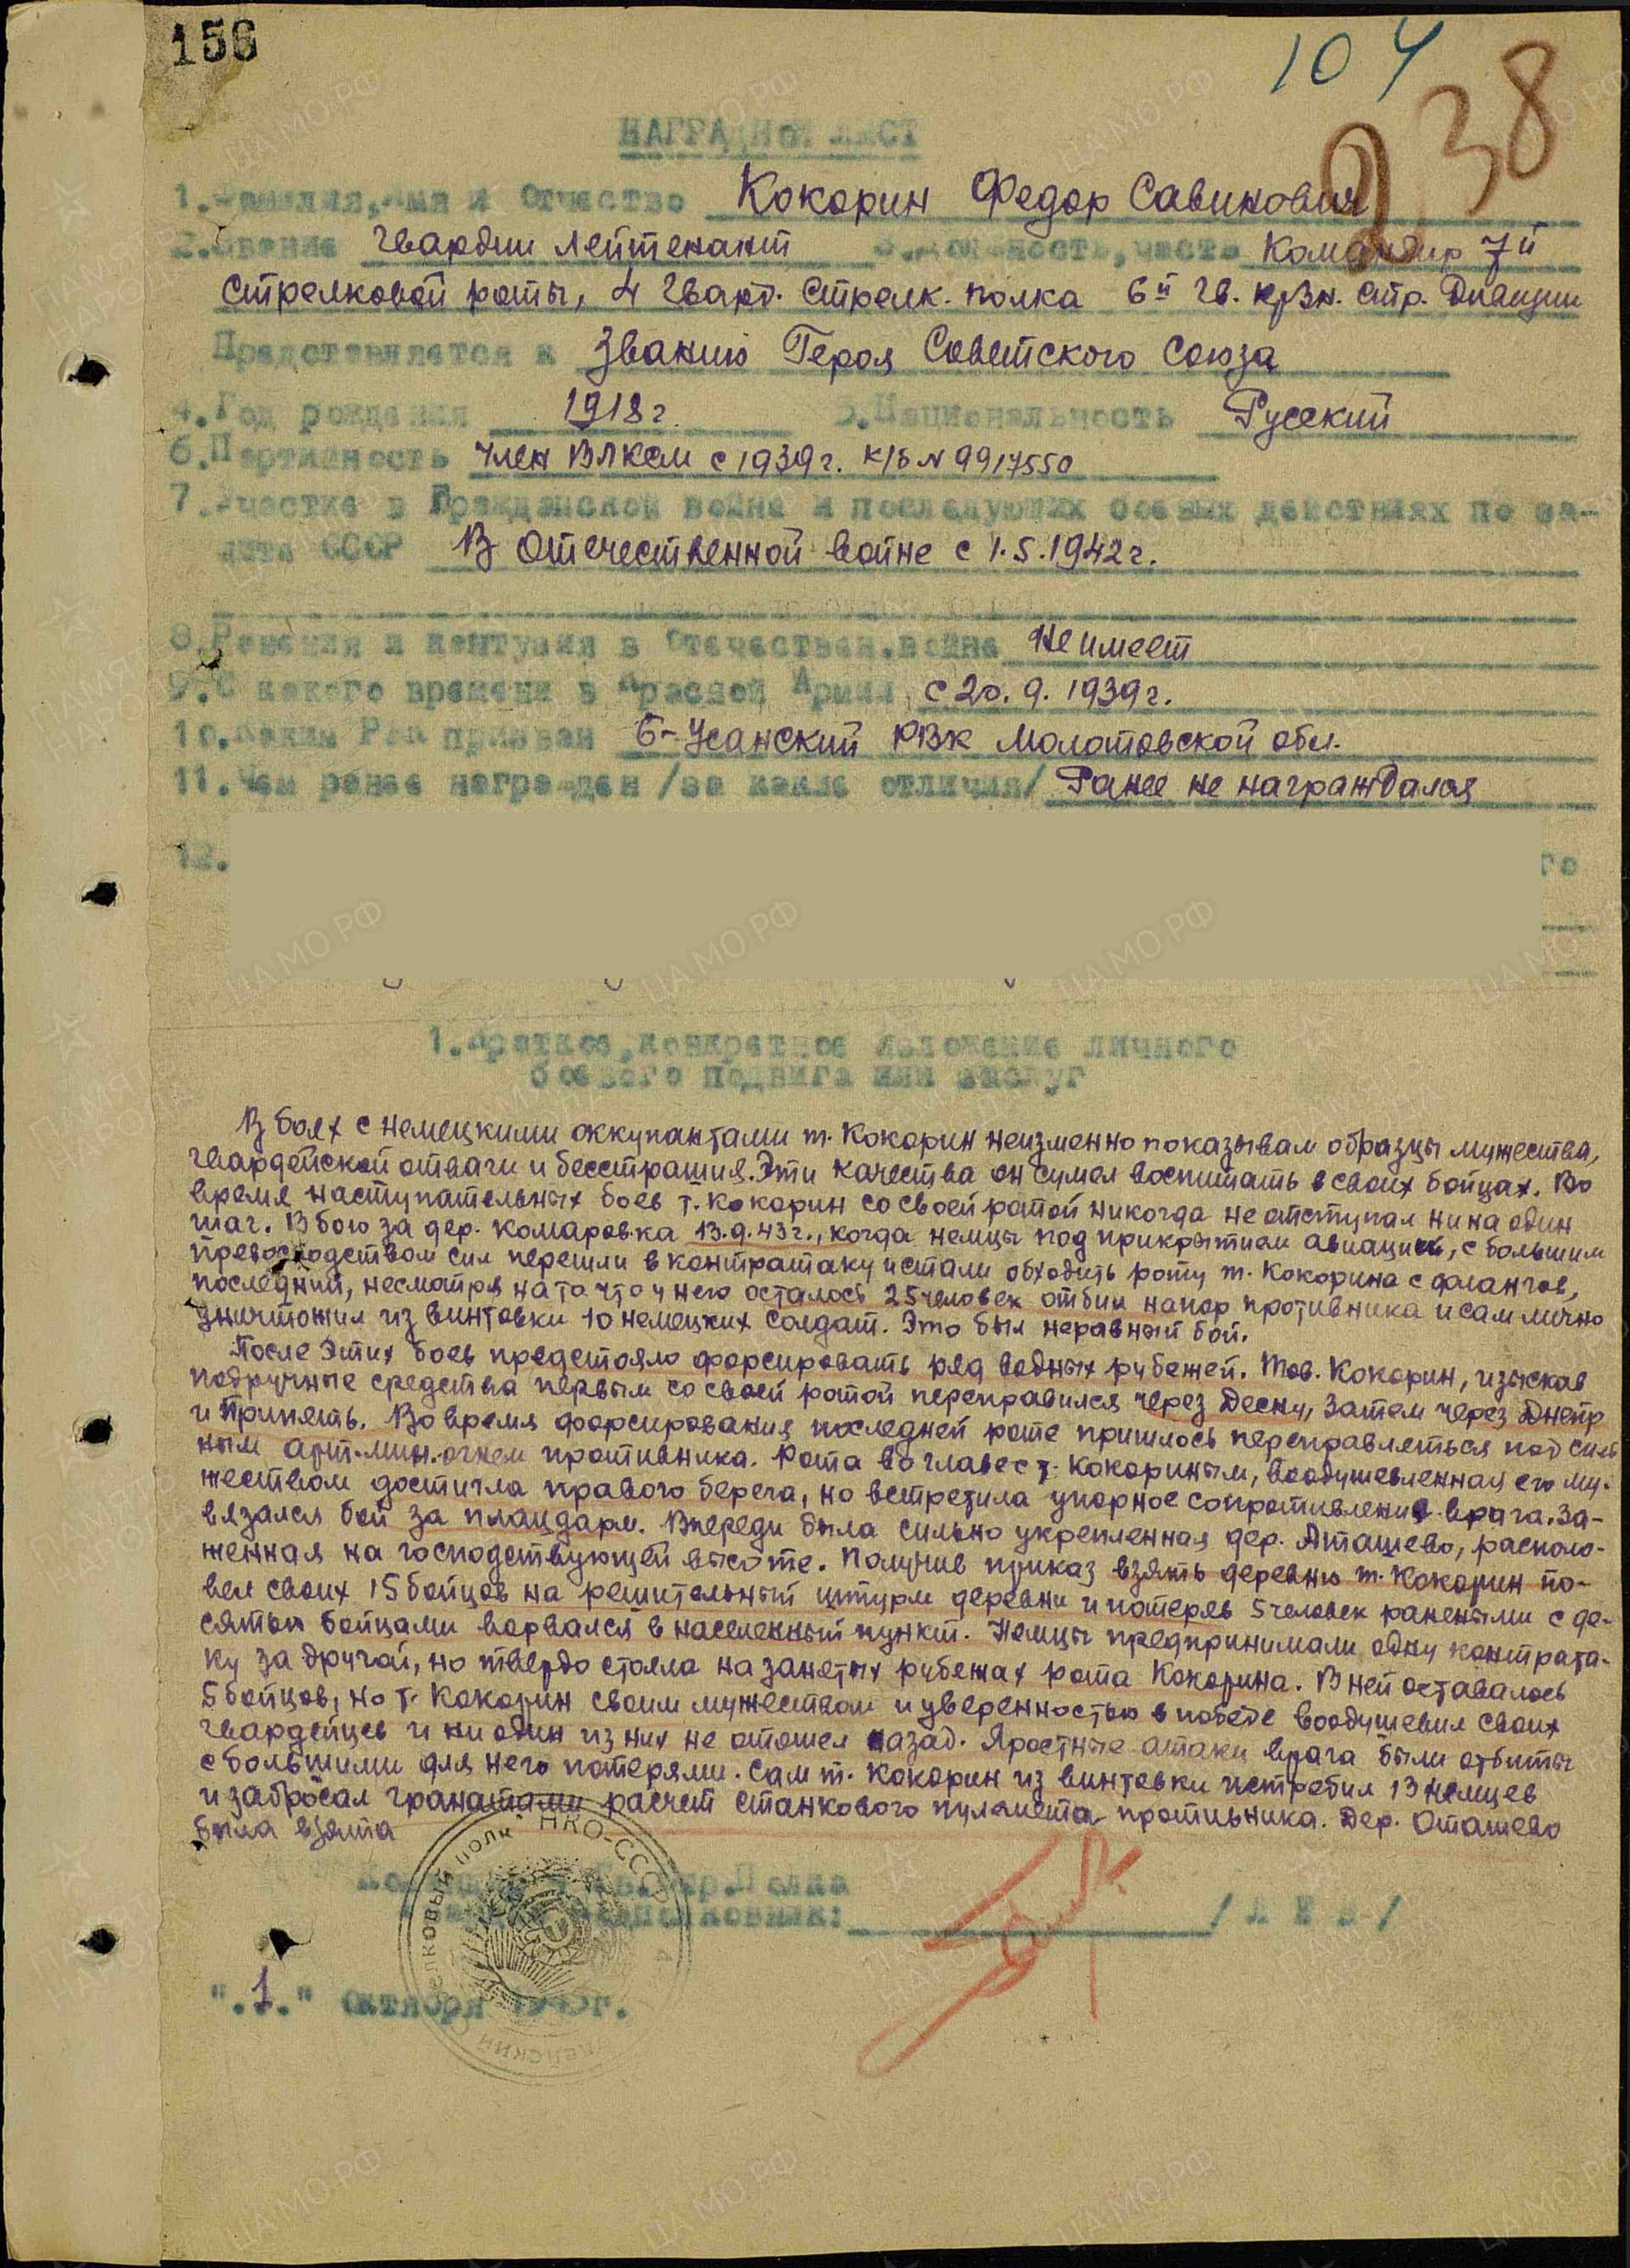 156
104
938
НАГРАДНОЙ ЛИСТ
1. Фамилия, имя и Отчество Кокорин Федор Савинович
2. Звание Гвардии лейтенант 3. Должность, часть Командир 7й
стрелковой роты, 4 Гвард. Стрелк. полка 6й Гв. крзн. стр. Дивизии
Представляется к званию Героя Советского Союза
4. Год рождения 1918 г. 5. Национальность Русский
6. Партийность член ВЛКСМ с 1939 г. к/б N 9917550
7. Участие в Гражданской войне и последующих боевых действиях по за-
щите СССР В Отечественной войне с 1.5.1942 г.
8. Ранения и контузия в Отечествен. войне Не имеет
9. С какого времени в Красной Армии с 20.9.1939 г.
10. Каким Рвк призван Б-Усанский РВК Молотовской обл.
11. Чем ранее награжден /за какие отличия/ Ранее не награждался
12. го
1. Краткое, конкретное изложение личного
боевого подвига или заслуг
В боях с немецкими оккупантами т. Кокорин неизменно показывал образцы мужества,
гвардейской отваги и бесстрашия. Эти качества он сумел воспитать в своих бойцах. Во
время наступательных боев т. Кокорин со своей ротой никогда не отступал ни на один
шаг. В бою за дер. Комаровка 13.9.43 г., когда немцы под прикрытием авиации, с большим
превосходством сил перешли в контратаку и стали обходить роту т. Кокорина с флангов,
последний, несмотря на то что у него осталось 25 человек отбил напор противника и сам лично
уничтожил из винтовки 10 немецких солдат. Это был неравный бой.
После этих боев предстояло форсировать ряд водных рубежей. Тов. Кокорин, изыскав
подручные средства первым со своей ротой переправился через Десну, затем через Днепр
и Припять. Во время форсирования последней роте пришлось переправляться под силь
ным арт. мин. огнем противника. Рота во главе с т. Кокориным, воодушевленная его му-
жеством достигла правого берега, но встретила упорное сопротивление врага. За-
вязался бой за плацдарм. Впереди была сильно укрепленная дер. Аташево, располо-
женная на господствующей высоте. Получив приказ взять деревню т. Кокорин по-
вел своих 15 бойцов на решительный штурм деревни и потеряв 5 человек ранеными с де-
сятью бойцами ворвался в населенный пункт. Немцы предпринимали одну контрата-
ку за другой, но твердо стояла на занятых рубежах рота Кокорина. В ней оставалось
5 бойцов, но т. Кокорин своим мужеством и уверенностью в победе воодушевил своих
гвардейцев и ни один из них не отошел назад. Яростные атаки врага были отбиты
с большими для него потерями. Сам т. Кокорин из винтовки истребил 13 немцев
и забросал гранатами расчет станкового пулемета противника. Дер. Оташево
была взята
полка
подполковник: / ЛЕВ /
"1" Октября 1943 г.
НКО-СССР